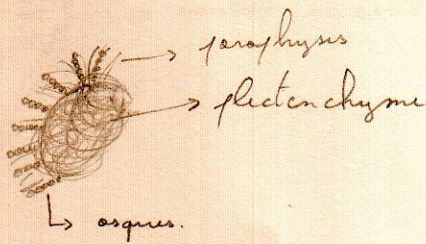 paraphysis
plectenchyme
asques.